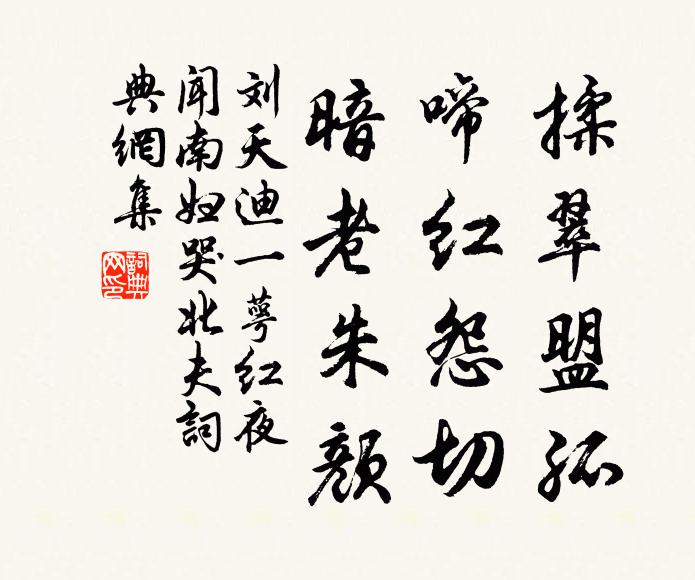 揉翠盟孤
啼红怨切
暗老朱颜
刘天迪一萼红夜
闻南妇哭北夫詞
典網集
詞典
网印